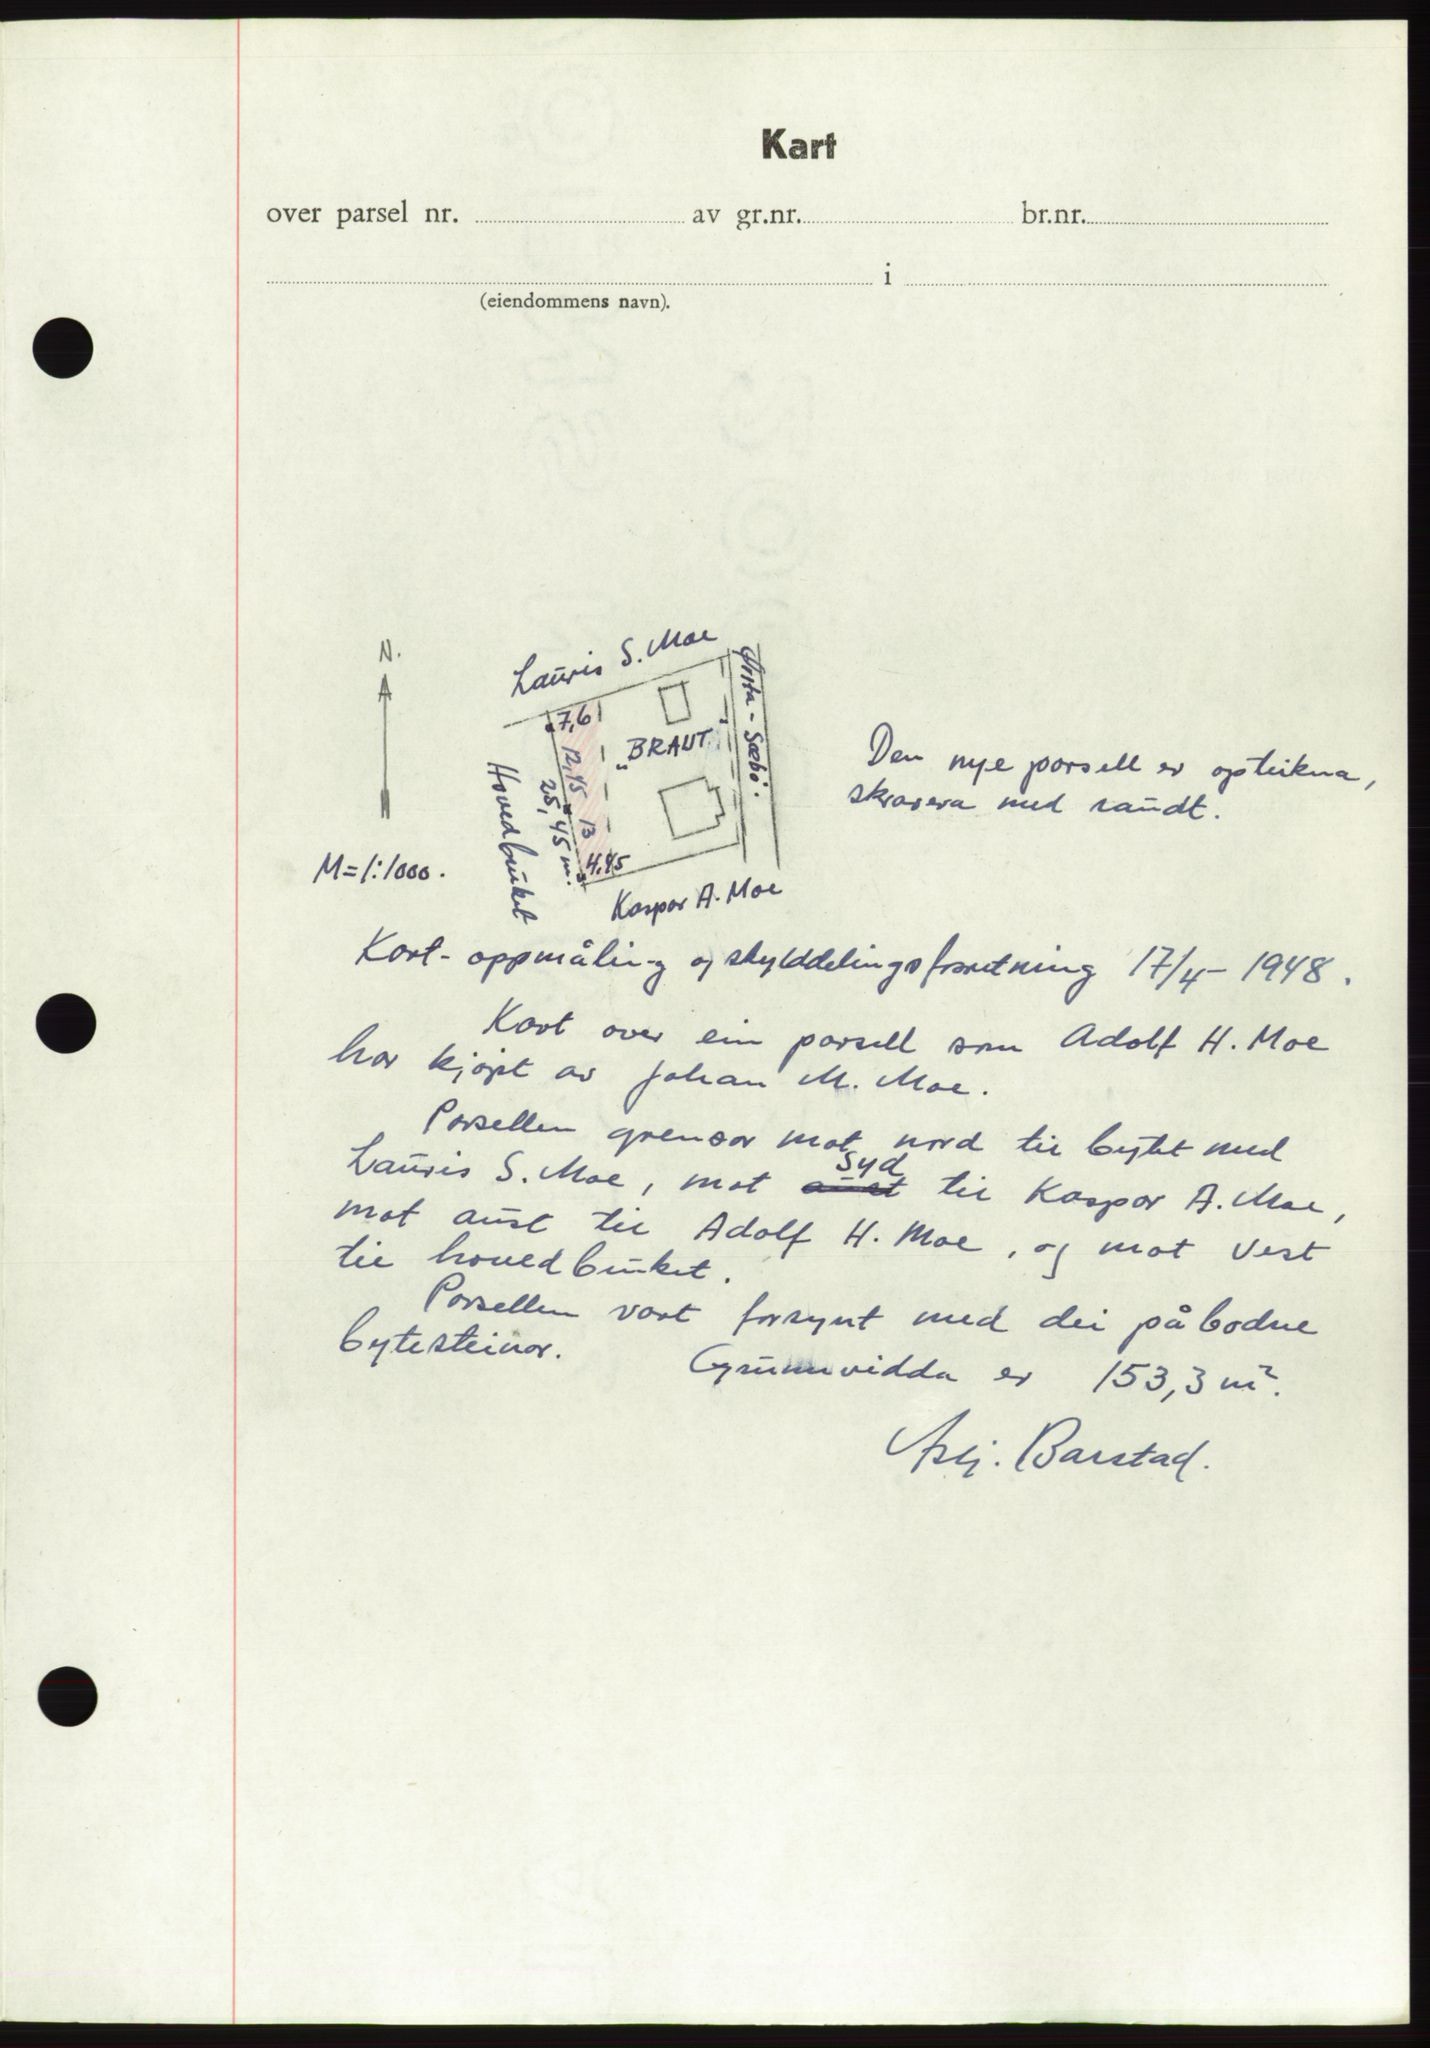 Kart
over parsel nr. av gr.nr. br.nr.
i
(eiendommens navn).
N.
Lauris S. Moe
Ørsta - Sæbö.
7,6
"BRAUT"
12,45
13
25,45 m.
4,45
Hovedbruket
Kaspar A. Moe
M = 1:1000.
Den nye parsell er opteikna,
skravera med raudt.
Kart- oppmåling og skylddelingsforretning 17/4 - 1948.
Kart over ein parsell som Adolf H. Moe
har kjöpt av Johan M. Moe.
Parsellen grensar mot nord til bytet med
Lauris S. Moe, mot aust syd til Kaspar A. Moe,
mot aust til Adolf H. Moe, og mot Vest
til hovedbruket.
Parsellen vart forsynt med dei påbodne
bytesteinar. Grunnvidda er 153,3 m².
Asbj. Barstad.